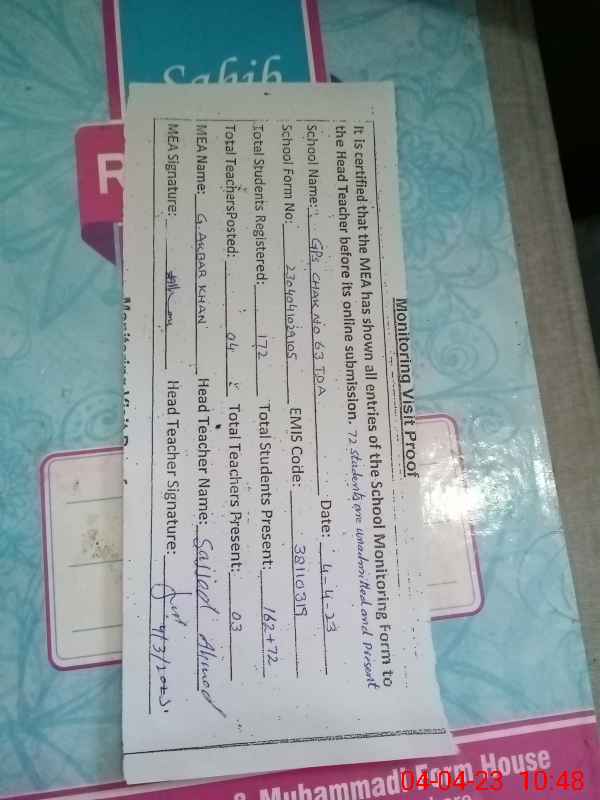 Sahib
R
Monitoring Visit Proof
It is certified that the MEA has shown all entries of the School Monitoring Form to
the Head Teacher before its online submission. 72 students are unadmitted and present
School Name: GPS CHAK NO 63 TDA Date: 4-4-23
School Form No: 230404029105 EMIS Code: 38110319
Total Students Registered: 172 Total Students Present: 162+72
Total TeachersPosted: 04 Total Teachers Present: 03
MEA Name: G. AKBAR KHAN Head Teacher Name: Sajjad Ahmad
MEA Signature: Head Teacher Signature: 4/3/2023
& Muhammadi Form House
04-04-23 10:48